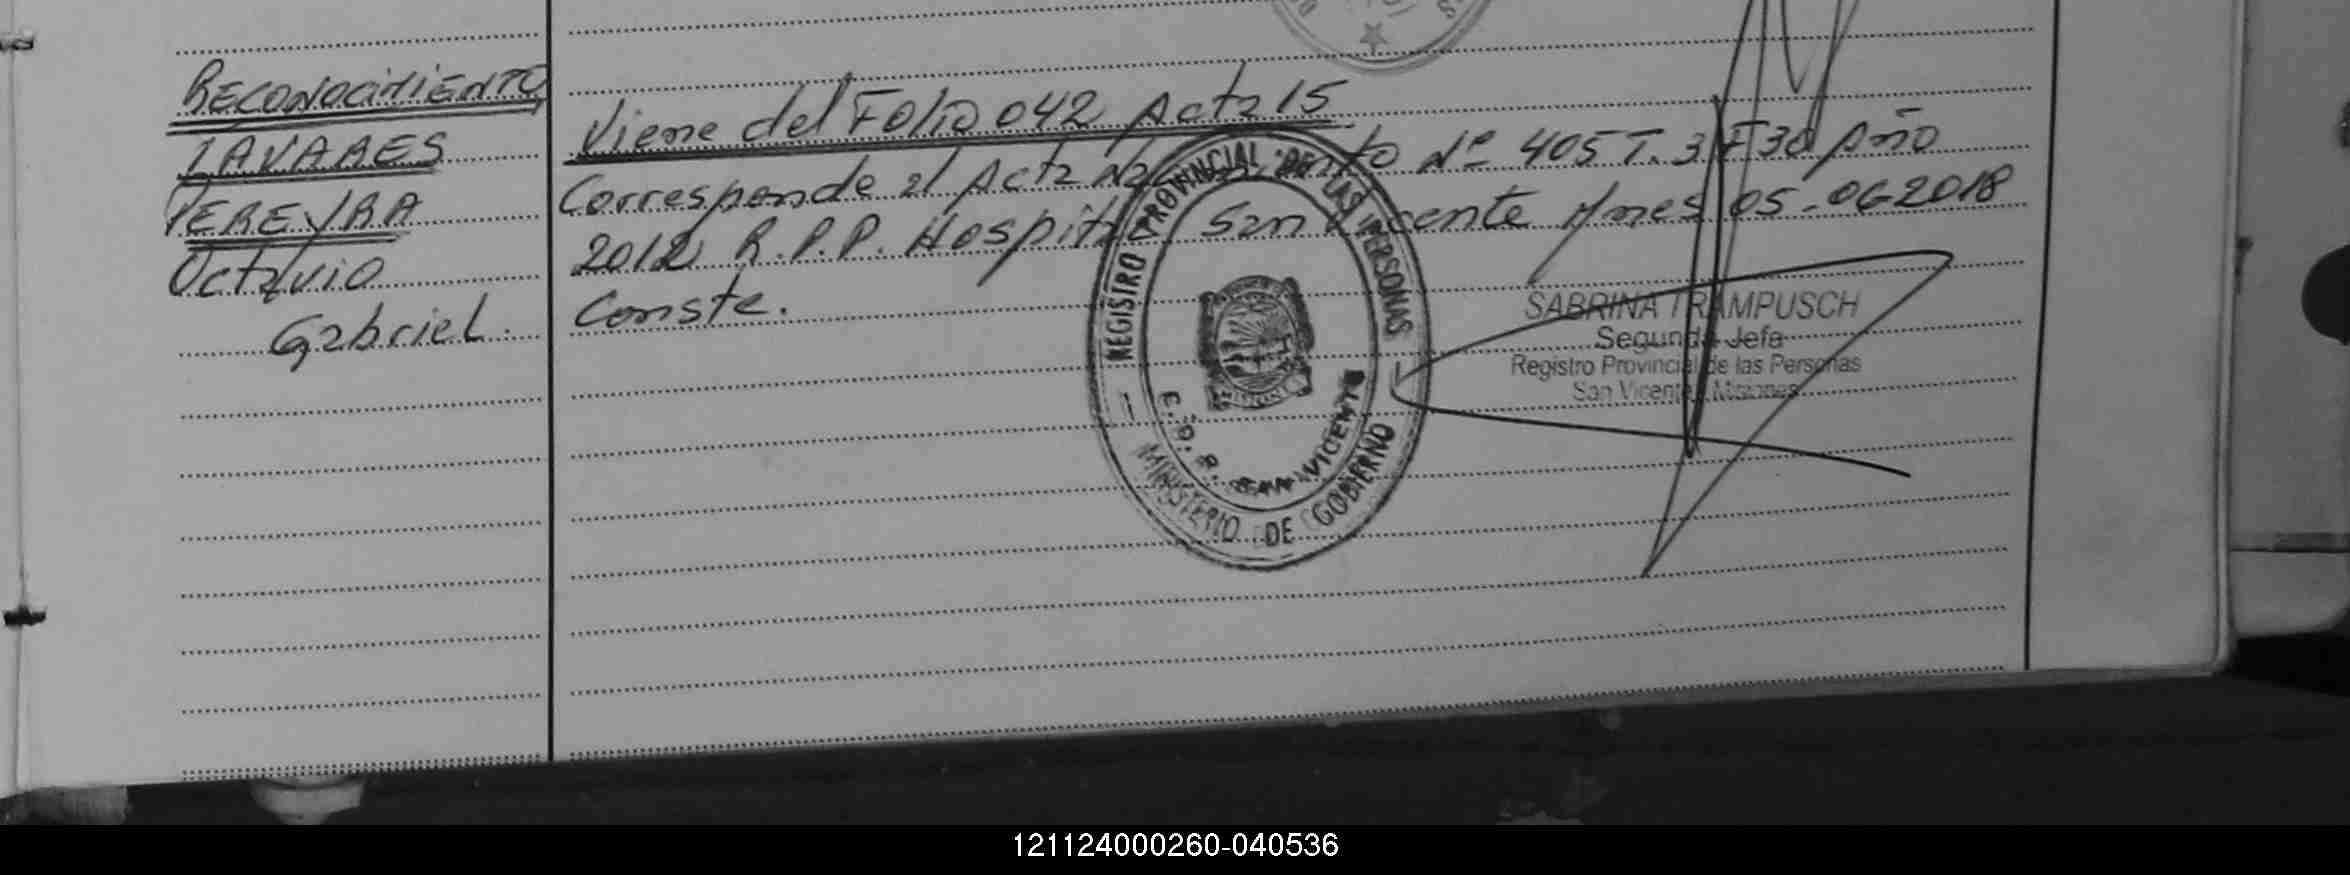 RECONOCIMIENTO
TAVARES
PEREYRA
Octavio
Gabriel.
Viene del FOLIO 042 Acta 15
Corresponde al Acta Nacimiento Nº 405 T. 3 F 30 Año
2012 R.P.P. Hospital San Vicente Mnes 05-06 2018
Conste.
REGISTRO PROVINCIAL DE LAS PERSONAS
SAN VICENTE
MINISTERIO DE GOBIERNO
SABRINA TRAMPUSCH
Segunda Jefa
Registro Provincial de las Personas
San Vicente Misiones
121124000260-040536